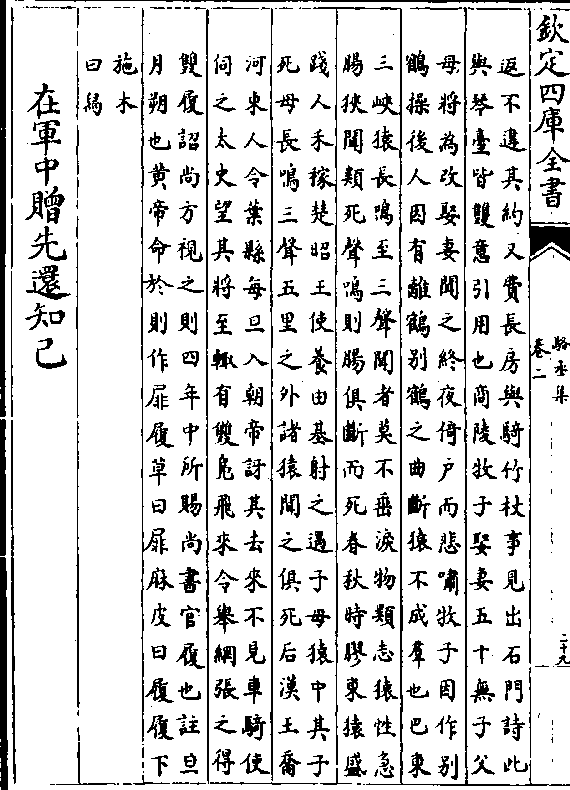 欽定四庫全書
駱丞集
卷二
二十九
返不違其約又費長房與騎竹杖事見出石門詩此
與琴臺皆雙意引用也商陵牧子娶妻五十無子父
母將為改娶妻聞之終夜倚户而悲嘯牧子因作别
鶴操後人因有離鶴别鶴之曲斷猿不成羣也巴東
三峽猿長鳴至三聲聞者莫不垂淚物類志猿性急
腸狹聞類死聲鳴則腸俱斷而死春秋時膠東猿盛
踐人禾稼楚昭王使養由基射之遇子母猿中其子
死母長鳴三聲五里之外諸猿聞之俱死后漢王喬
河東人令葉縣每旦入朝帝訝其去來不見車騎使
伺之太史望其將至輒有雙鳬飛來令舉網張之得
雙履詔尚方視之則四年中所賜尚書官履也註旦
月朔也黄帝命於則作扉履草曰扉麻皮曰履履下
施木
曰舄
在軍中贈先還知己